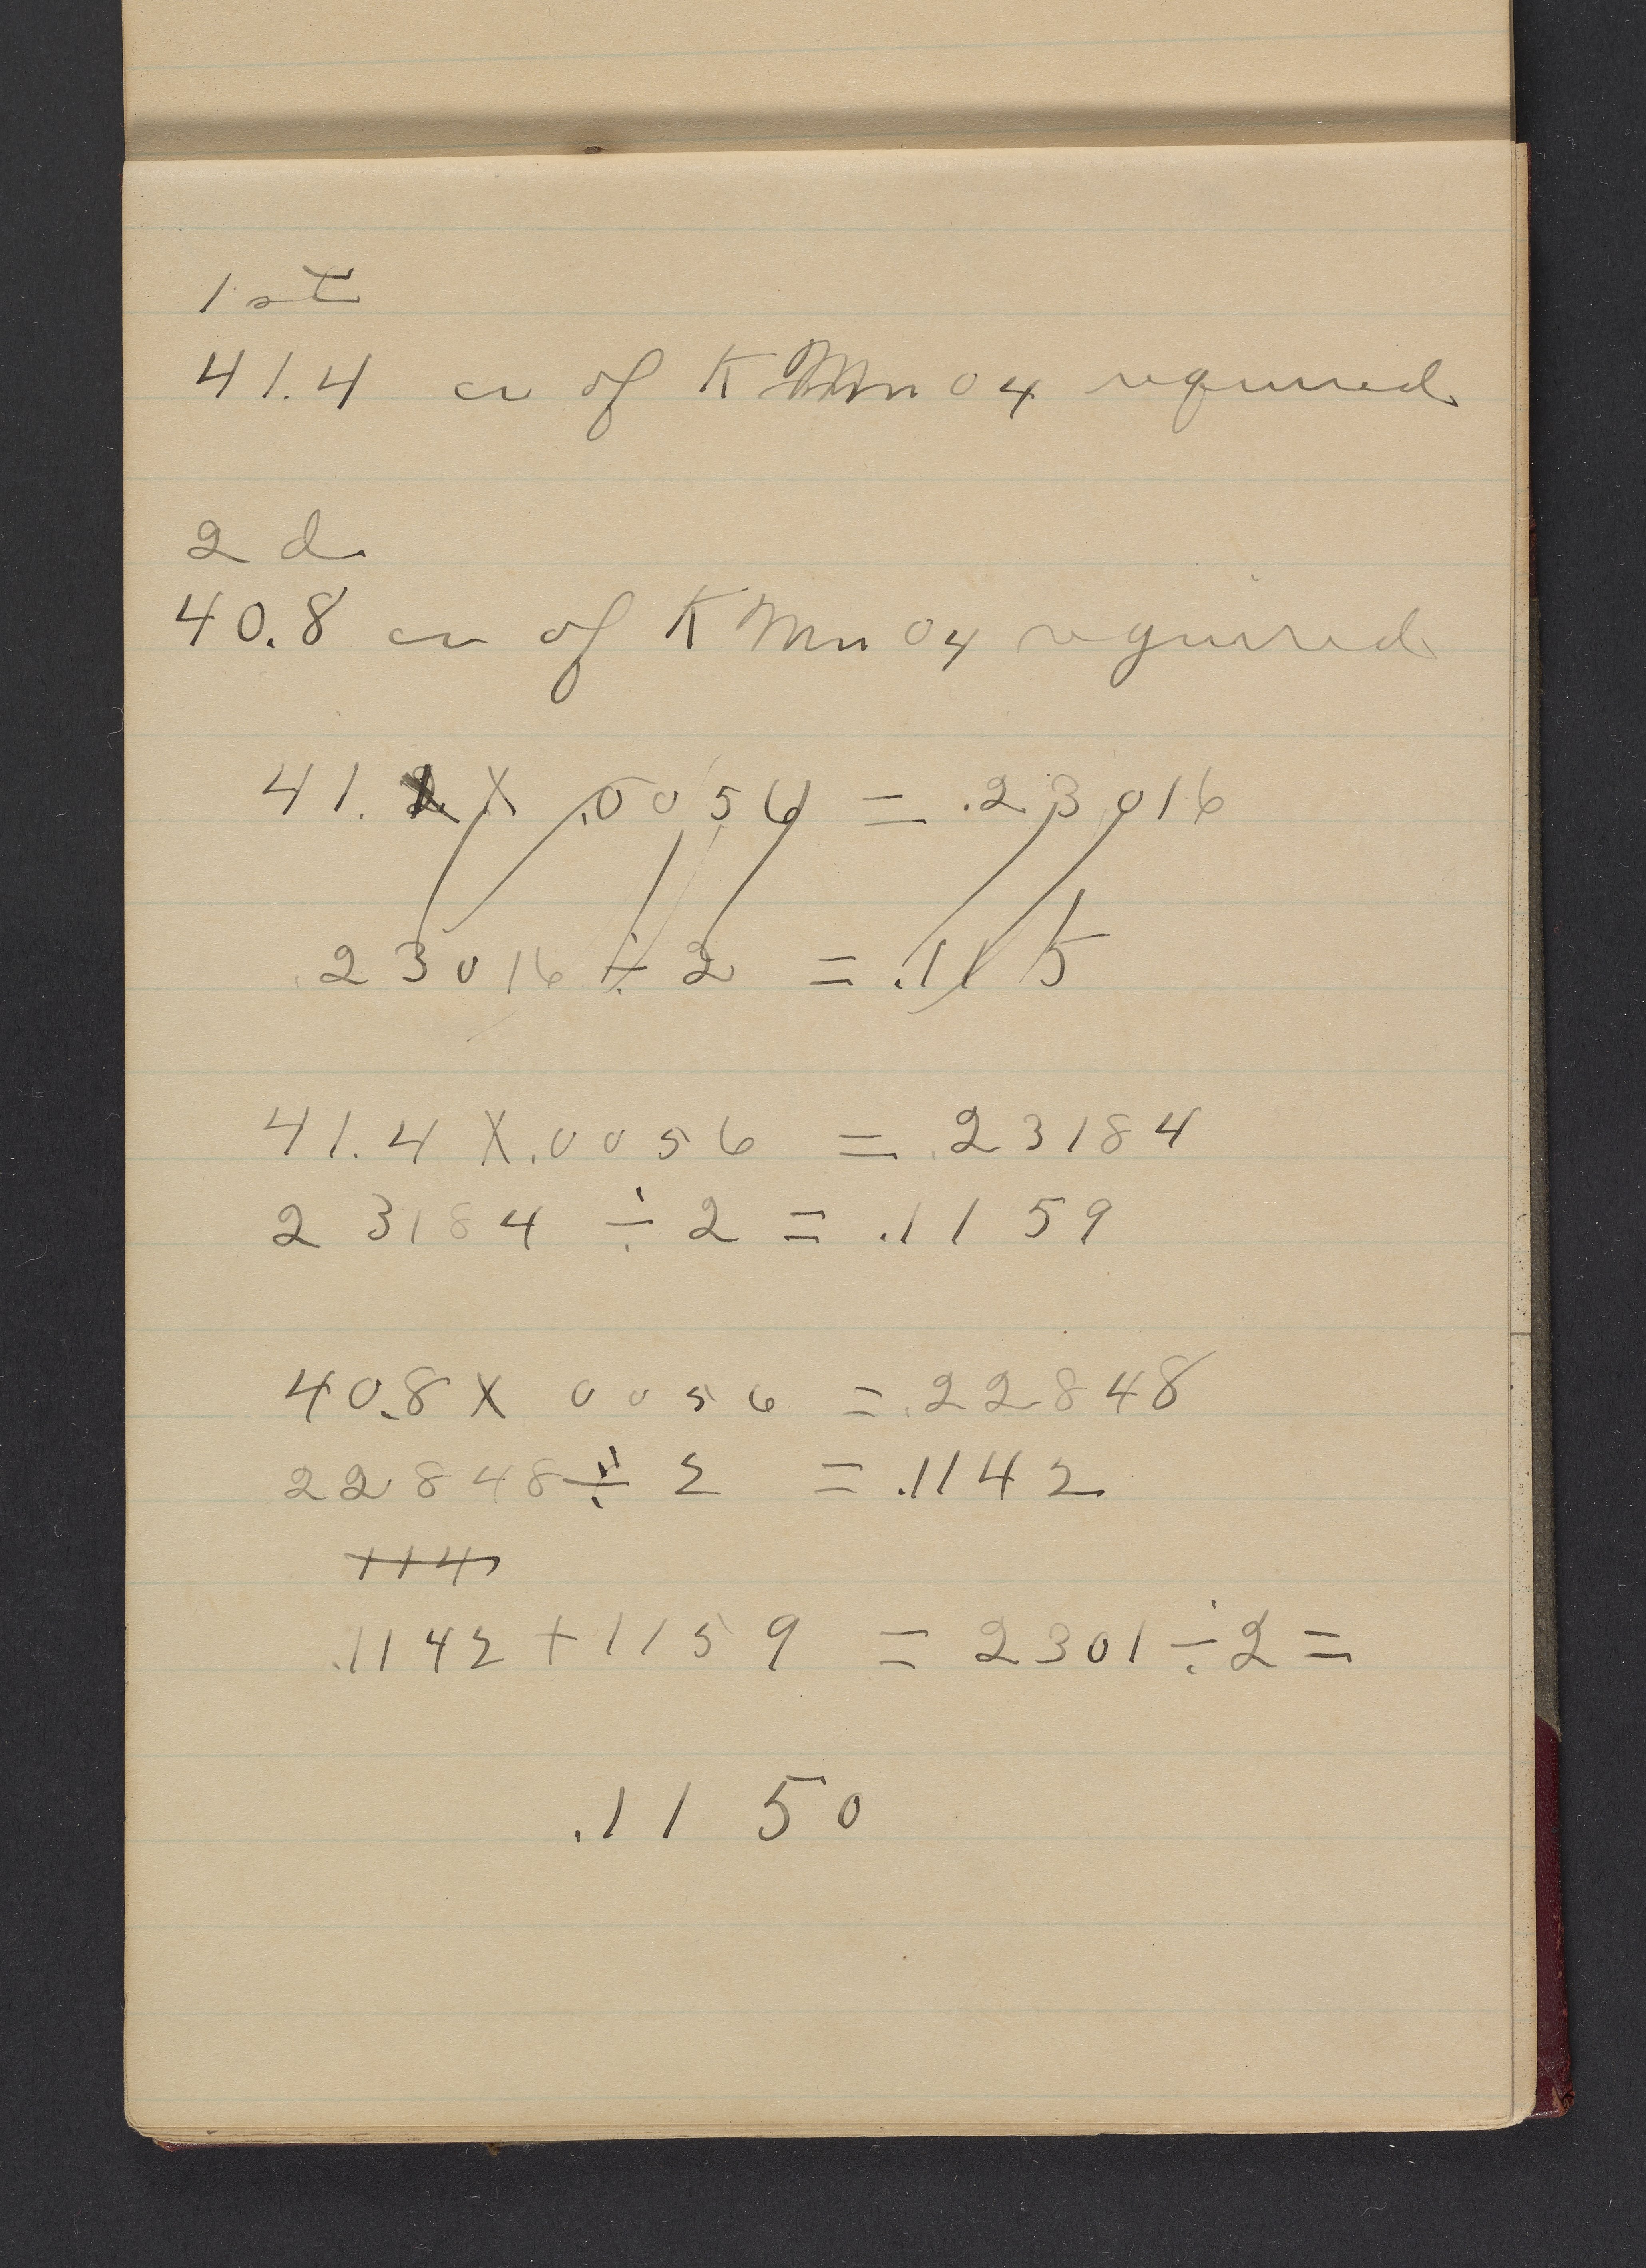 1st
41.4 cc of KMnO4 required
2d
40.8 cc of KMnO4 required
41. X .0056 = .23016
.23016 ÷ 2 = .115
41.4 X .0056 = .23184
23184 ÷ 2 = .1159
40.8 X 0056 = .22848
22848 ÷ 2 = .1142
114
.1142 + 1159 = 2301 ÷ 2 =
.1150